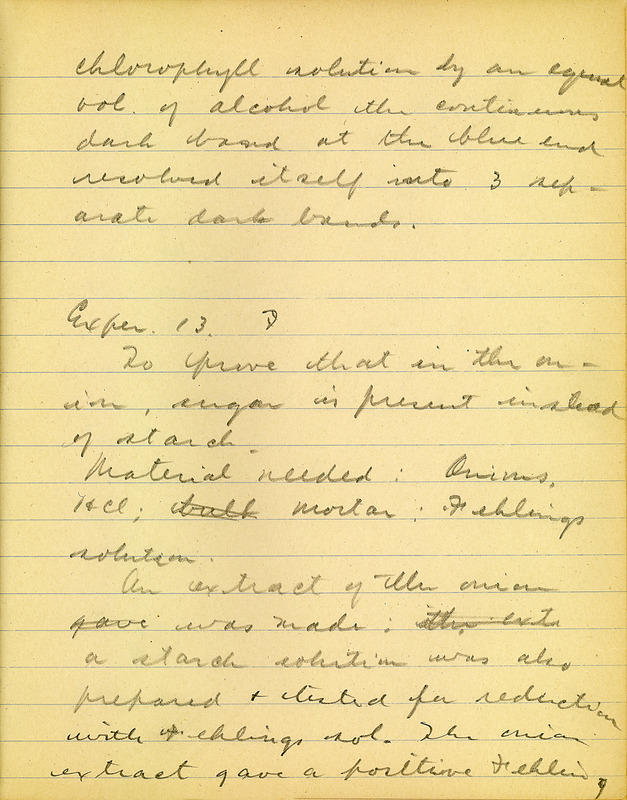 chlorophyll solution by an equal
vol. of alcohol the continuous
dark band at the blue end
resolved itself into 3 sep-
arate dark bands.
Exper. 13.
To prove that in the on-
ion, sugar is present instead
of starch.
Material needed: Onions,
HCl; bulb mortar; Fehlings
solution.
An extract of the onion
gave was made; the ext
a starch solution was also
prepared + tested for reduction
with Fehlings sol. The onion
extract gave a positive Fehling